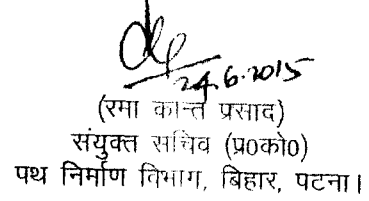 24.6.2015
(रमा कान्त प्रसाद)
संयुक्त सचिव (प्र0को0)
पथ निर्माण विभाग, बिहार, पटना।